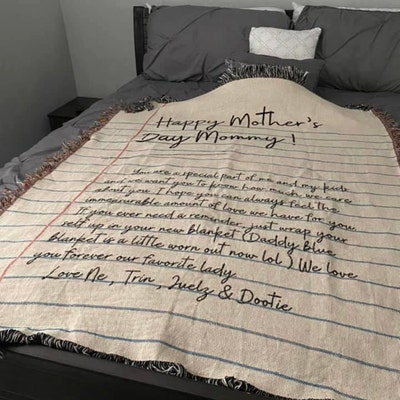 Happy Mother's
Day Mommy!
You are a special part of me and my kids
and we want you to know how much we care
about you. I hope you can always feel the
immeasurable amount of love we have for you.
If you ever need a reminder just wrap your
self up in your new blanket (Daddy Blue
blanket is a little worn out now lol) We love
you forever our favorite lady
Love Ne, Trin, Juelz & Dootie